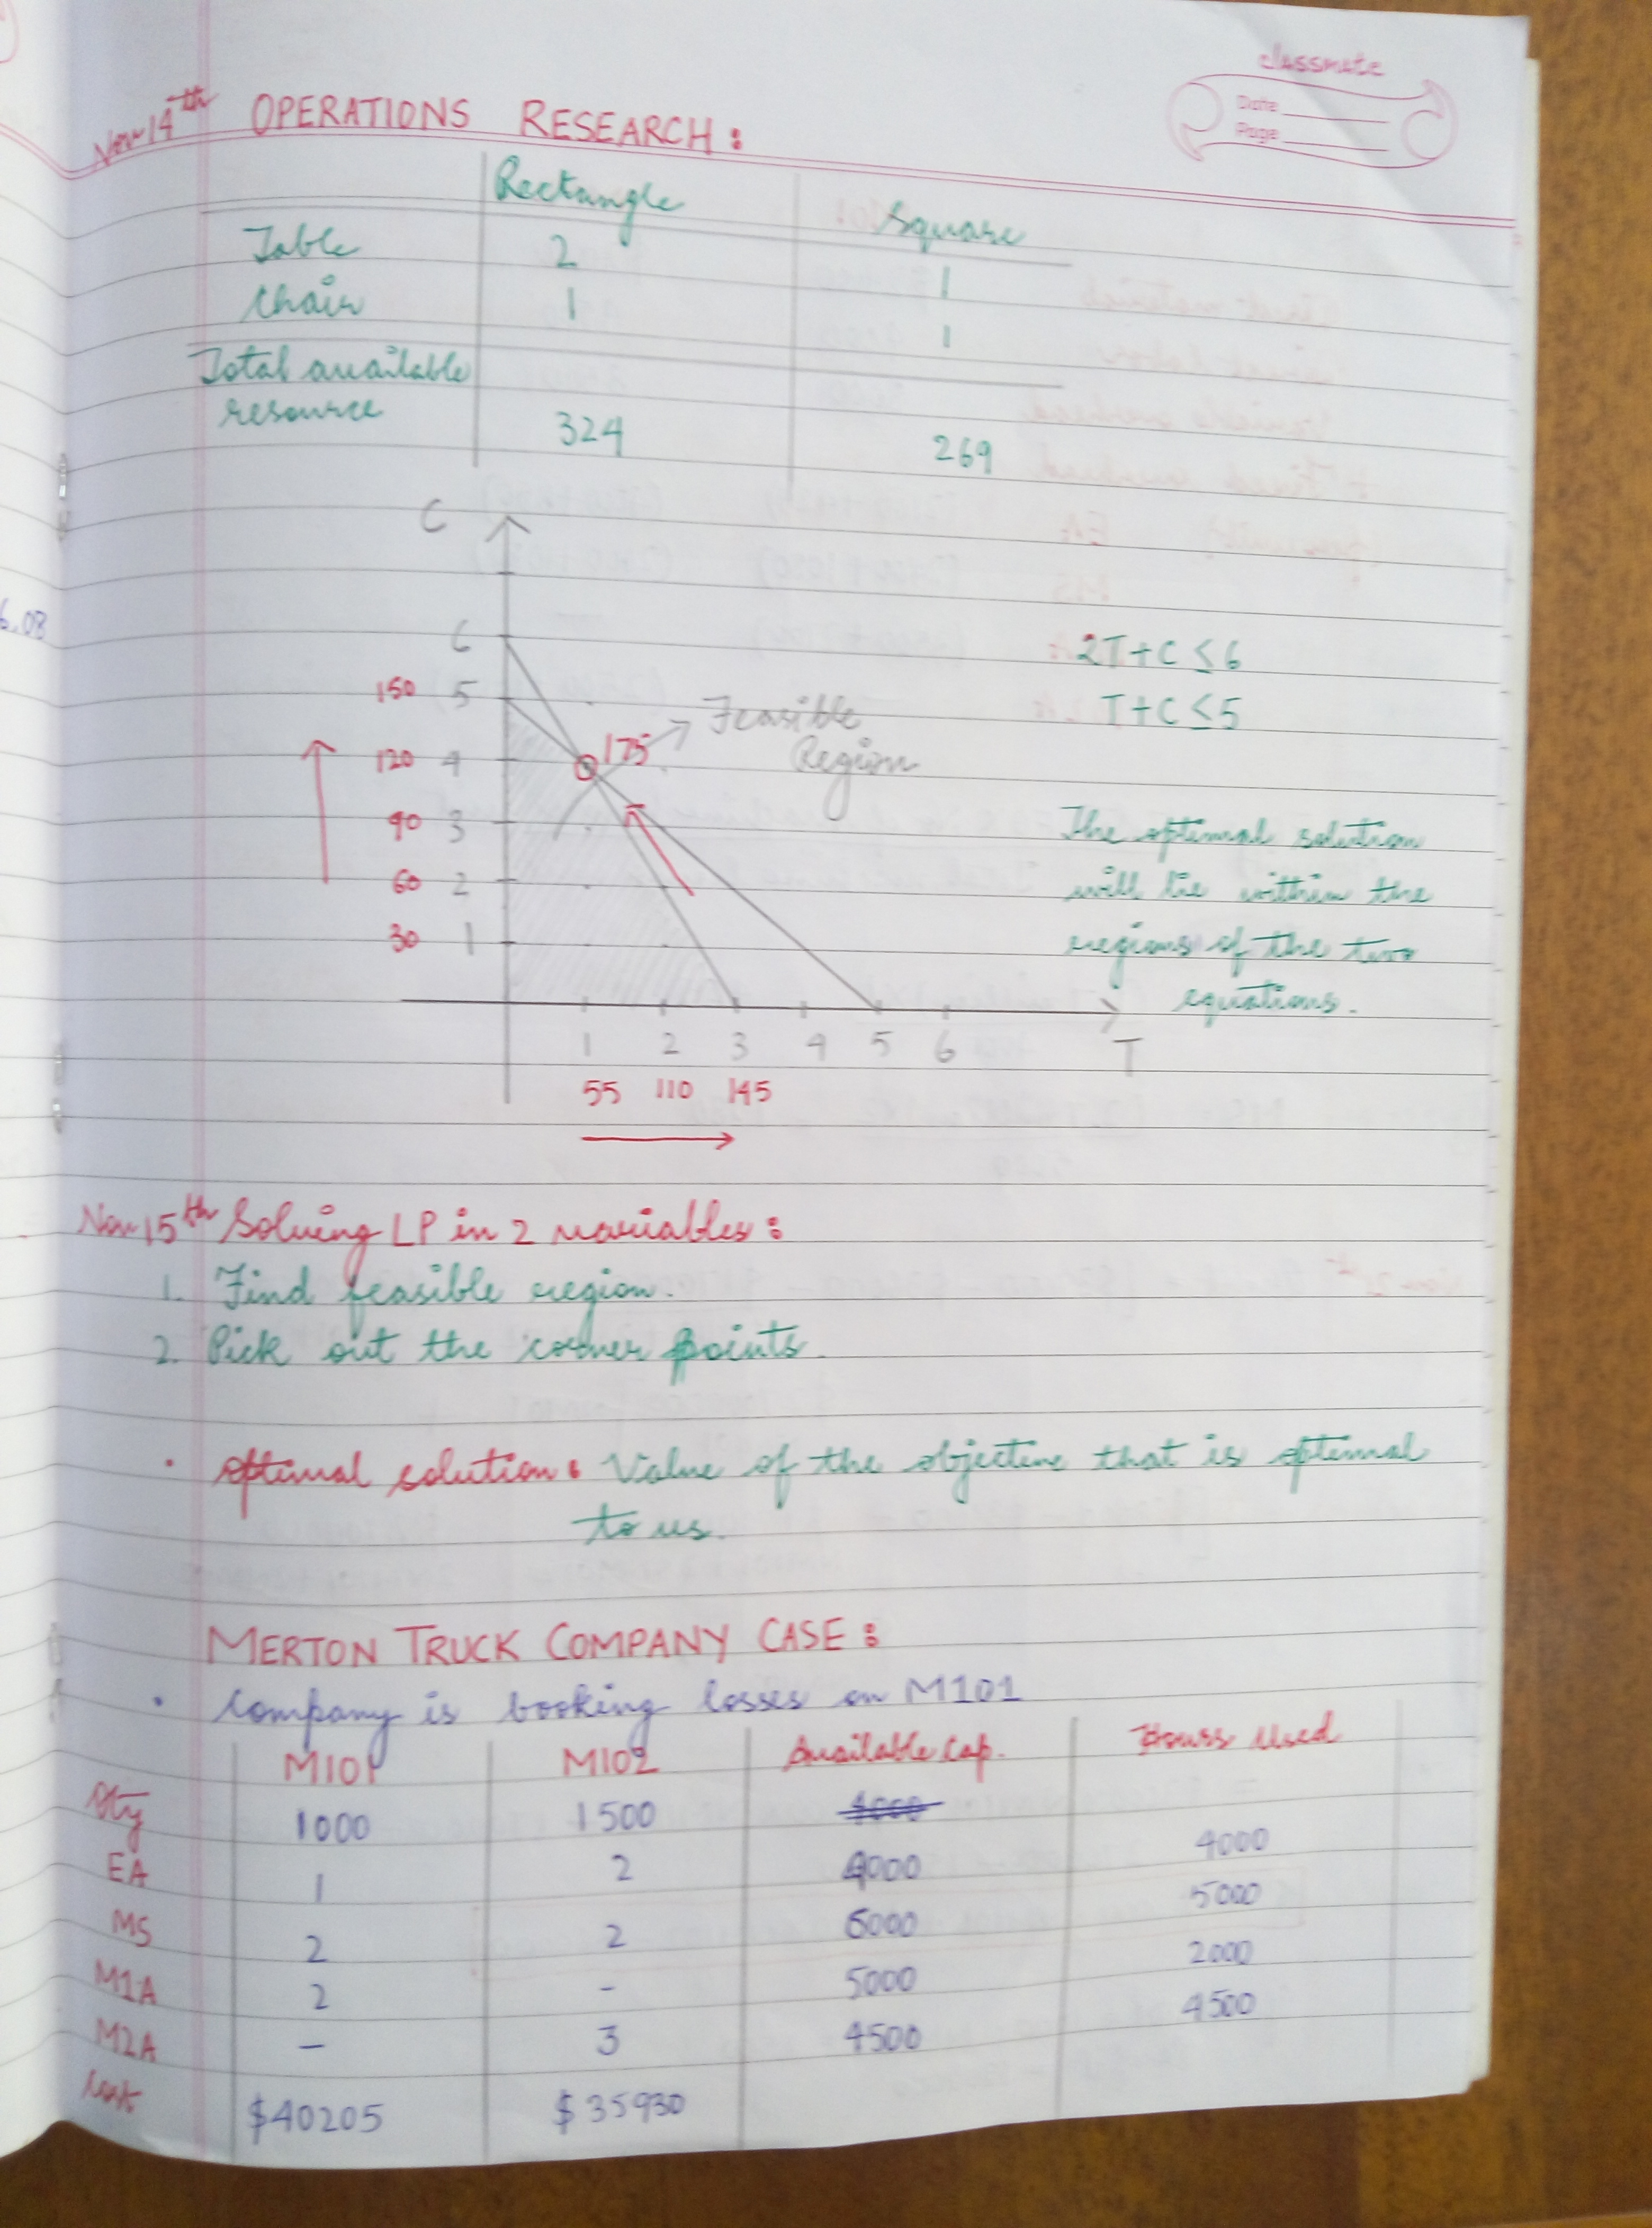 classmate
Date
Page
Nov 14th OPERATIONS RESEARCH :
Rectangle Square
Table 2 1
Chair 1 1
Total available
resource 324 269
C
6
150 5
120 4
90 3
60 2
30 1
175
Feasible
Region
2T+C ≤ 6
T+C ≤ 5
The optimal solution
will lie within the
regions of the two
equations.
1 2 3 4 5 6 T
55 110 145
6.08
Nov 15th Solving LP in 2 variables :
1. Find feasible region.
2. Pick out the corner points.
• Optimal solution : Value of the objective that is optimal
to us.
MERTON TRUCK COMPANY CASE :
• Company is booking losses on M101
M101 M102 Available Cap. Hours Used
Qty 1000 1500
EA 1 2 4000 4000
MS 2 2 6000 5000
M1A 2 - 5000 2000
M2A - 3 4500 4500
Cost $40205 $35930